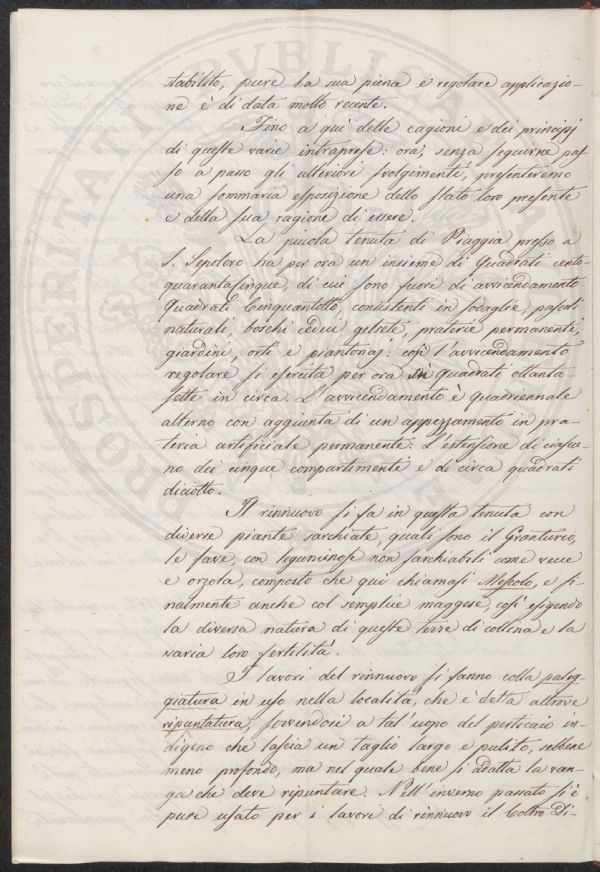 stabilito, pure la sua piena e regolare applicazio-
ne è di data molto recente.
Fino a qui delle cagioni e dei principj
di queste varie intraprese: ora, senza seguirne pas-
so a passo gli ulteriori svolgimenti, presenteremo
una sommaria esposizione dello stato loro presente
e della sua ragione di essere.
La piccola tenuta di Piaggia presso a
S. Sepolcro ha per ora un insieme di Quadrati cento-
quarantacinque, di cui sono fuori di avvicendamento
Quadrati Cinquantotto, consistenti in sodaglie, pascoli
naturali, boschi cedui gelseti, praterie permanenti,
giardini, orti e piantonaj: così l'avvicendamento
regolare si esercita per ora in Quadrati ottanta-
sette in circa. L'avvicendamento è quadriennale
alterno con aggiunta di un appezzamento in pra-
teria artificiale permanente. L'estensione di ciascu-
no dei cinque compartimenti è di circa quadrati
diciotto.
Il rinnuovo si fa in questa tenuta con
diverse piante sarchiate, quali sono il Granturco,
le fave, con leguminose non sarchiabili come vecce
e orzola, composto che qui chiamasi Mescolo, e fi-
nalmente anche col semplice maggese, così esigendo
la diversa natura di queste terre di collina e la
varia loro fertilità.
I lavori del rinnuovo si fanno colla paleg-
giatura in uso nella località, che è detta altrove
ripuntatura, servendosi a tal'uopo del perticaio in-
digeno che lascia un taglio largo e pulito, sebbene
meno profondo, ma nel quale bene si adatta la van-
ga che deve ripuntare. Nell'inverno passato si è
pure usato per i lavori di rinnuovo il Coltro Di-
PROSPERITATI PUBLICAE